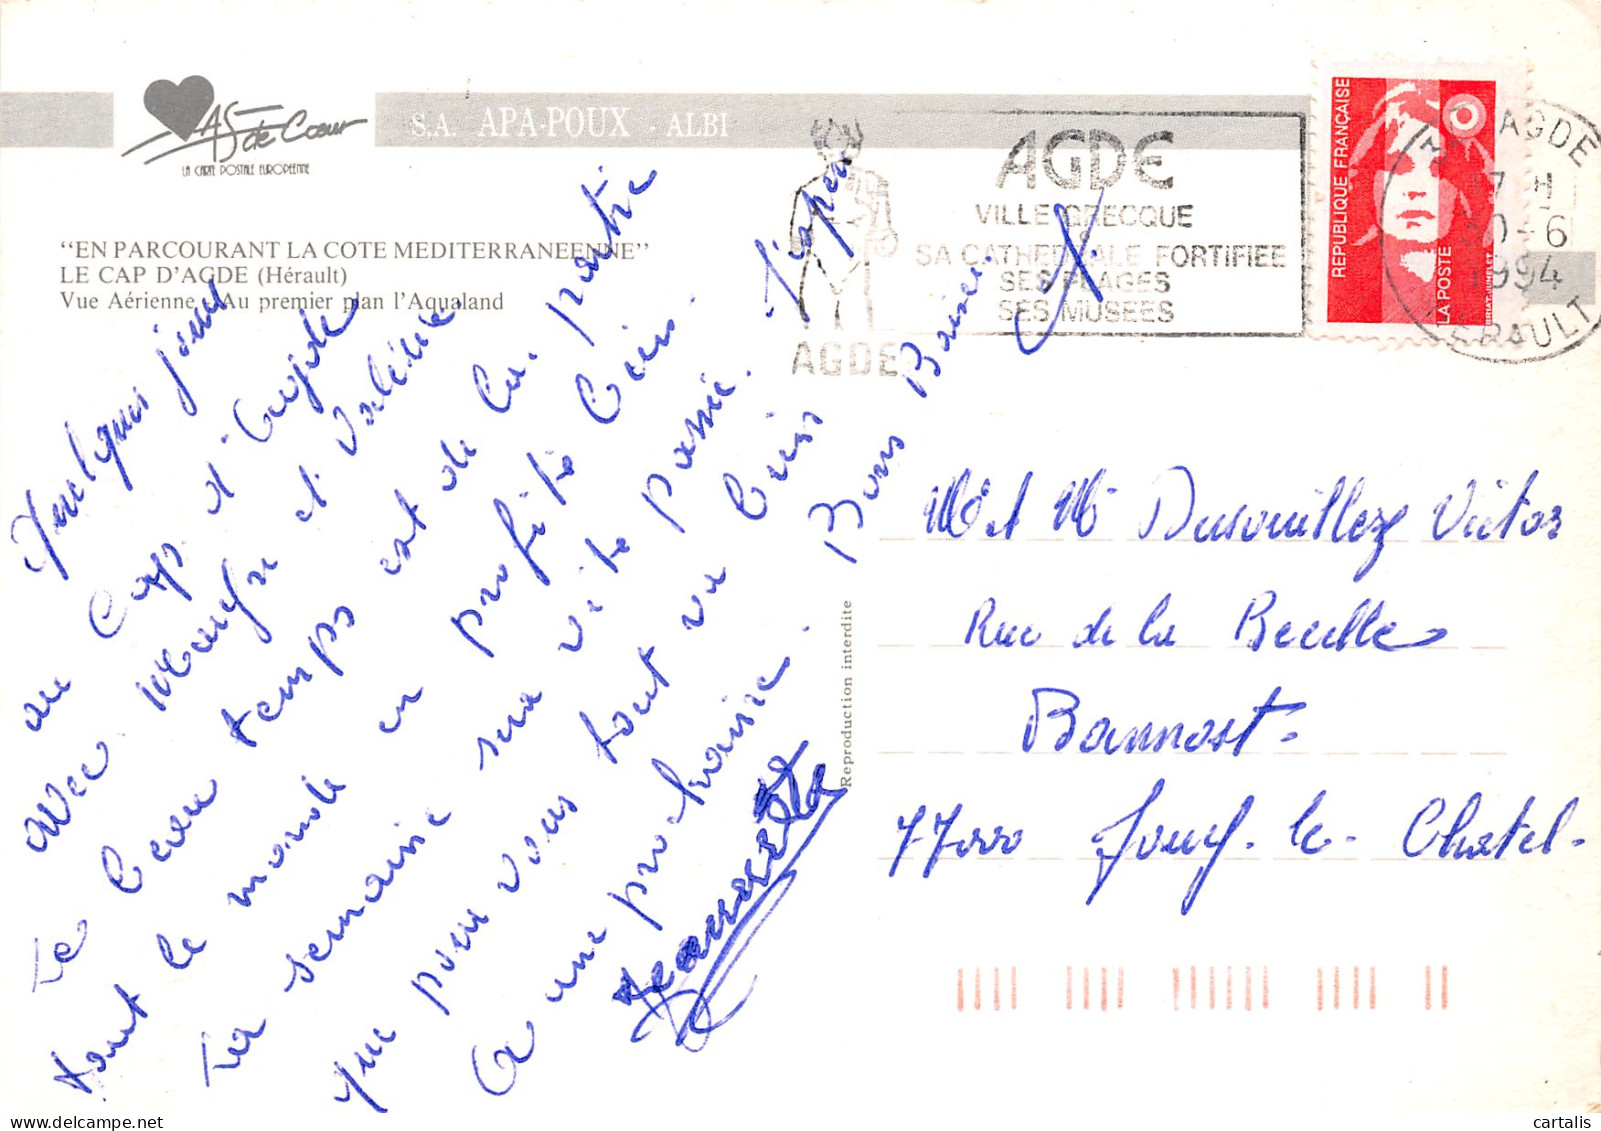 As de Cœur
LA CARTE POSTALE EUROPÉENNE
S.A. APA-POUX - ALBI
"EN PARCOURANT LA COTE MEDITERRANEENNE"
LE CAP D'AGDE (Hérault)
Vue Aérienne - Au premier plan l'Aqualand
AGDE
AGDE
VILLE GRECQUE
SA CATHEDRALE FORTIFIEE
SES PLAGES
SES MUSEES
REPUBLIQUE FRANÇAISE
LA POSTE
AGDE
17 H
30-6
1994
HERAULT
Quelques jours
au Cap d'Agde
avec et
Le beau temps est de la partie
tout le monde en profite bien.
La semaine sera vite passée. J'espère
que pour vous tout va bien
A une prochaine. Bons Baisers.
Jeannette
Reproduction interdite
M et M Victor
Rue de la
Bannost-
77000 Jouy-le-Chatel-
cartalis
www.delcampe.net